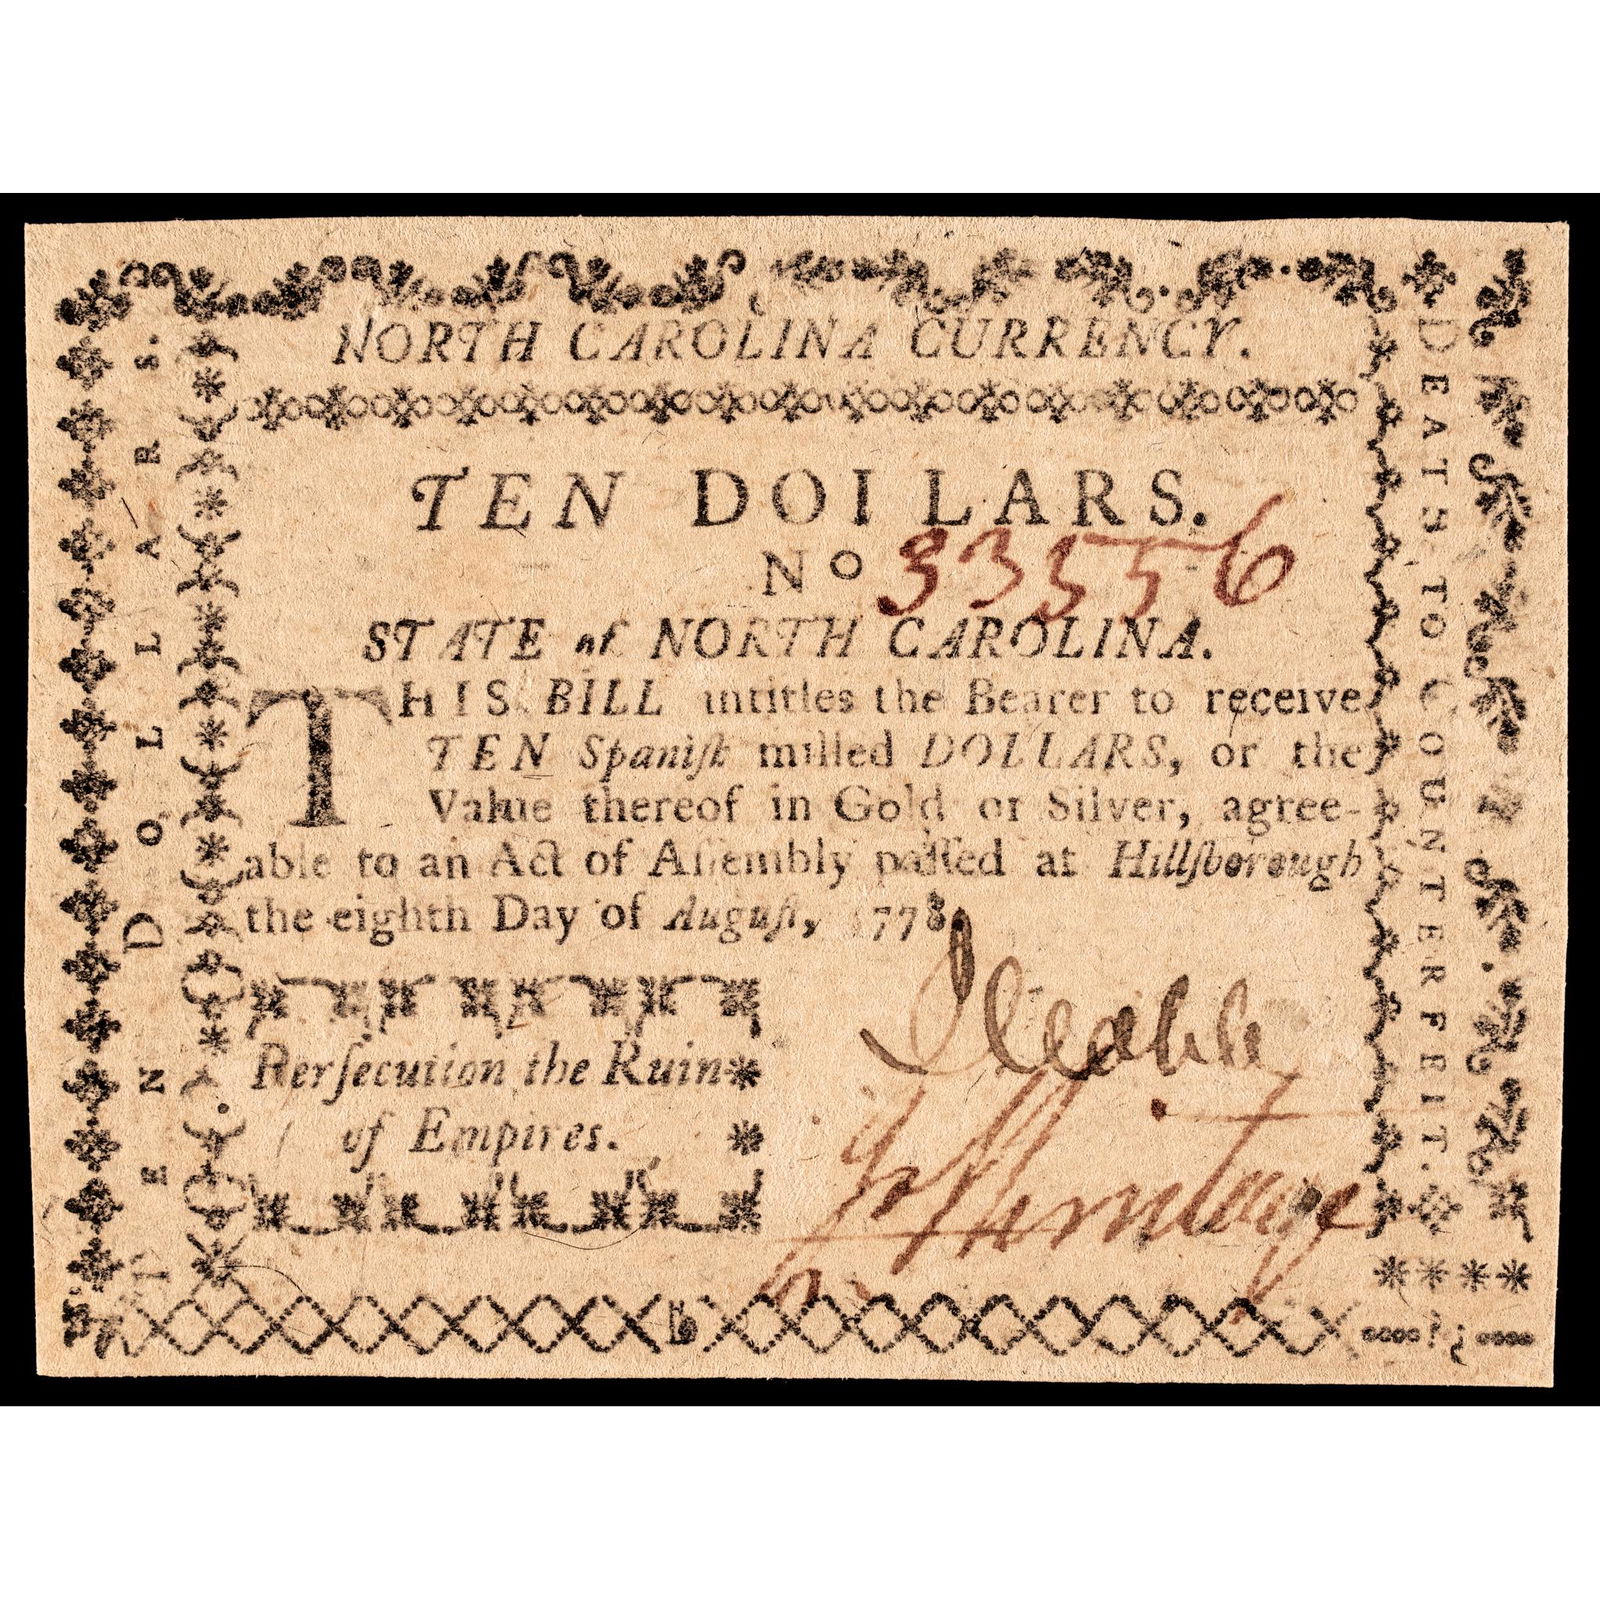 NORTH CAROLINA CURRENCY.
TEN DOLLARS.
No 33556
STATE of NORTH CAROLINA.
THIS BILL intitles the Bearer to receive
TEN Spaniſh milled DOLLARS, or the
Value thereof in Gold or Silver, agree-
able to an Act of Aſſembly paſſed at Hillſborough
the eighth Day of Auguſt, 1778.
Perſecution the Ruin
of Empires.
TEN DOLLARS.
DEATH TO COUNTERFEIT.